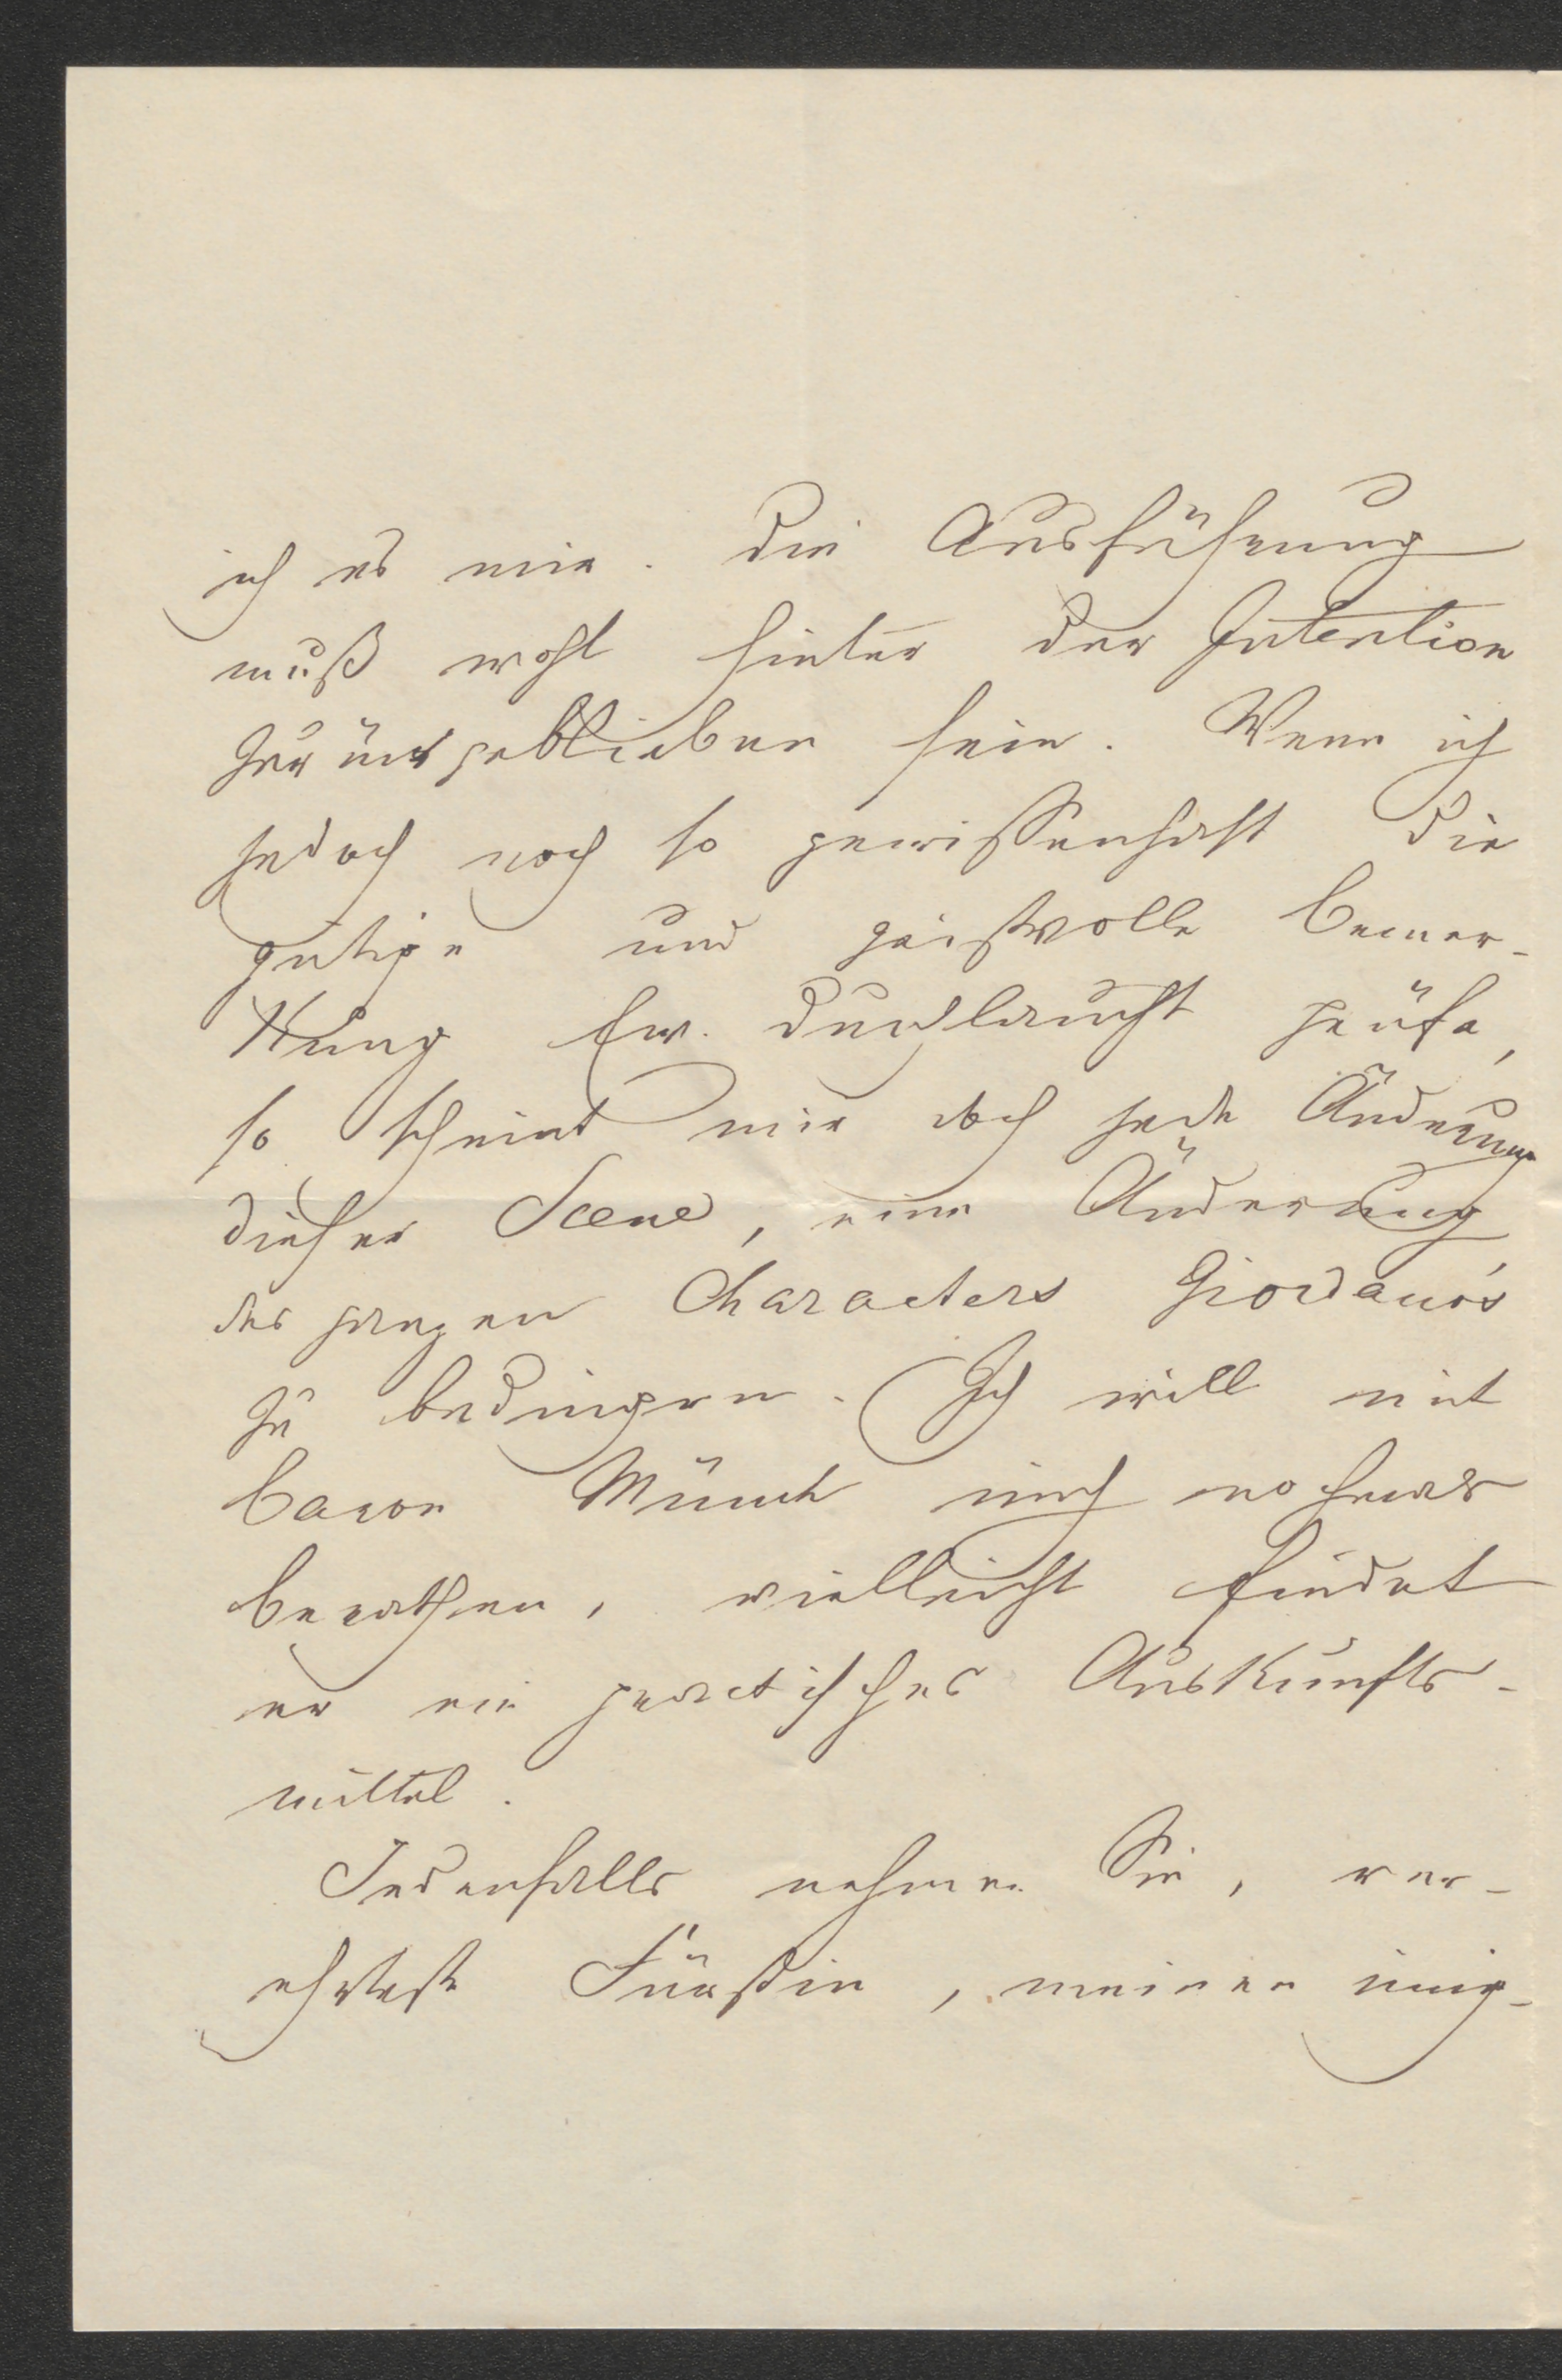 ich es nie. Die Ausführung
muß wohl hinter der Intention
zurückgeblieben sein. Wenn ich
jedoch noch so gewissenhaft die
gütige und geistvolle Bemer-
kung Ew. Durchlaucht prüfe,
so scheint mir doch jede Änderung
dieser Scene, eine Änderung
des ganzen Characters Giordano's
zu bedingen. Ich will mit
Baron Münch mich
berathen, vielleicht findet
er ein practisches Auskunfts-
mittel.
Jedenfalls nehmen Sie, ver-
ehrteste Fürstin, meinen innig-